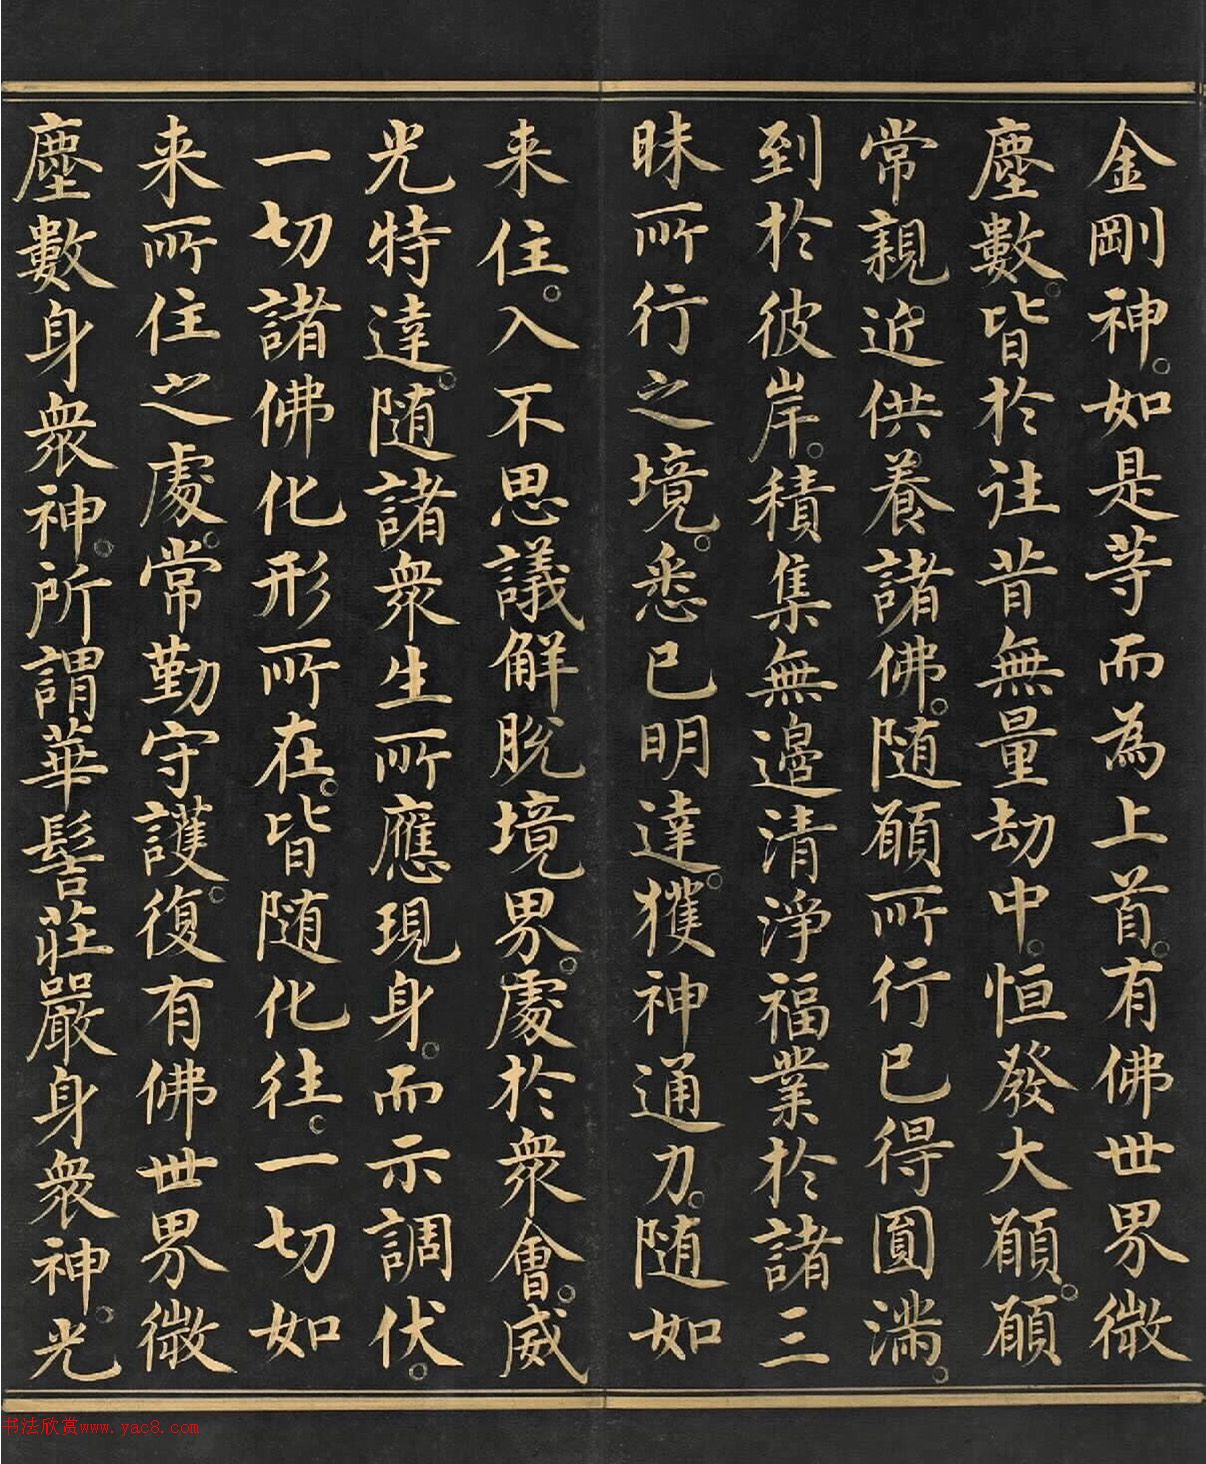 金剛神。如是等而為上首。有佛世界微
塵數。皆於往昔無量劫中。恒發大願。願
常親近供養諸佛。隨願所行已得圓滿。
到於彼岸。積集無邊清淨福業於諸三
昧所行之境。悉已明達。獲神通力。隨如
来住。入不思議解脫境界。處於眾會。威
光特達。隨諸眾生所應現身。而示調伏。
一切諸佛化形所在。皆隨化往。一切如
来所住之處。常勤守護。復有佛世界微
塵數身眾神。所謂華髻莊嚴身眾神。光
书法欣赏www.yac8.com